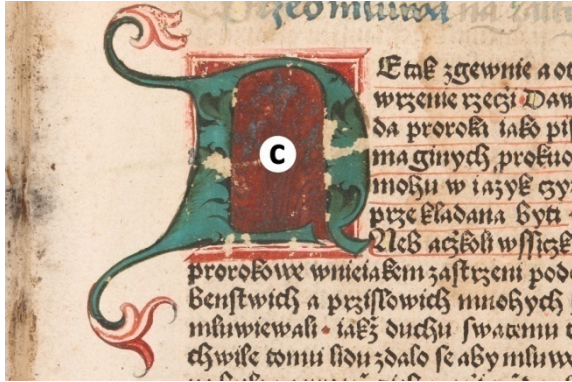 Przedmluwa na zalt
NEtak zgewnie a ot
wrzenie rzeczi Daw
da proroka iako pis
ma ginych prokuo
mohu w iazyk czy
prze kladana byti
C
Neb aczkoli wssiczk
prorokowe wnieiakem zastrzeni pod
benstwich a przislowich mnohych
mluwiewali · iakž duchu swatemu
chwile tomu lidu zdalo se aby mluw